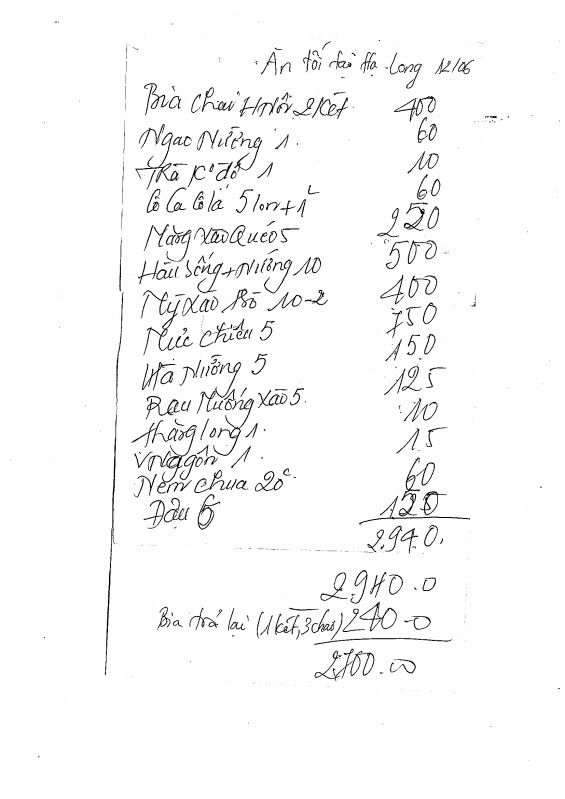 Ăn tối tại Hạ Long 12/06
Bia chai HNội 2 két 400
Ngao Nướng 1. 60
Trà 1 10
Cô Ca Cô la 5 lon + 1 60
Măng xào Quéo 5 220
Hàu Sống + Nướng 10 500
Mỳ xào Bò 10-2 400
Mực chiên 5 750
Nướng 5 150
Rau Muống xào 5. 125
thăng long 1. 10
1. 15
Nem chua 20c. 60
Đậu 6 120
2.940.
2940.0
Bia trả lại (1 két, 3 chai) 240-0
2700.00